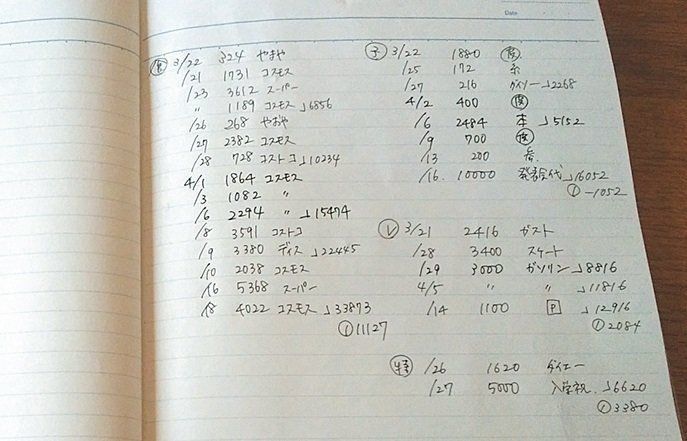 Date
㊎ 3/22 324 やおや
/21 1731 コスモス
/23 3612 スーパー
〃 1189 コスモス 」6856
/26 268 やおや
/27 2382 コスモス
/28 728 コストコ 」10234
4/1 1864 コスモス
/3 1082 〃
/6 2294 〃 」15474
/8 3591 コストコ
/9 3380 ディス 」22445
/10 2038 コスモス
/16 5368 スーパー
/18 4022 コスモス 」33873
11127
子 3/22 1880
/25 172 糸
/27 216 ダイソー 」2268
4/2 400
/6 2484 本 」5152
/9 700
/13 200
/16 10000 発表会代 」16052
-1052
Ⓛ 3/21 2416 ガスト
/28 3400 スケート
/29 3000 ガソリン 」8816
4/5 〃 〃 」11816
/14 1100 P 」12916
2084
特 /26 1620 ダイエー
/27 5000 入学祝 」6620
3380